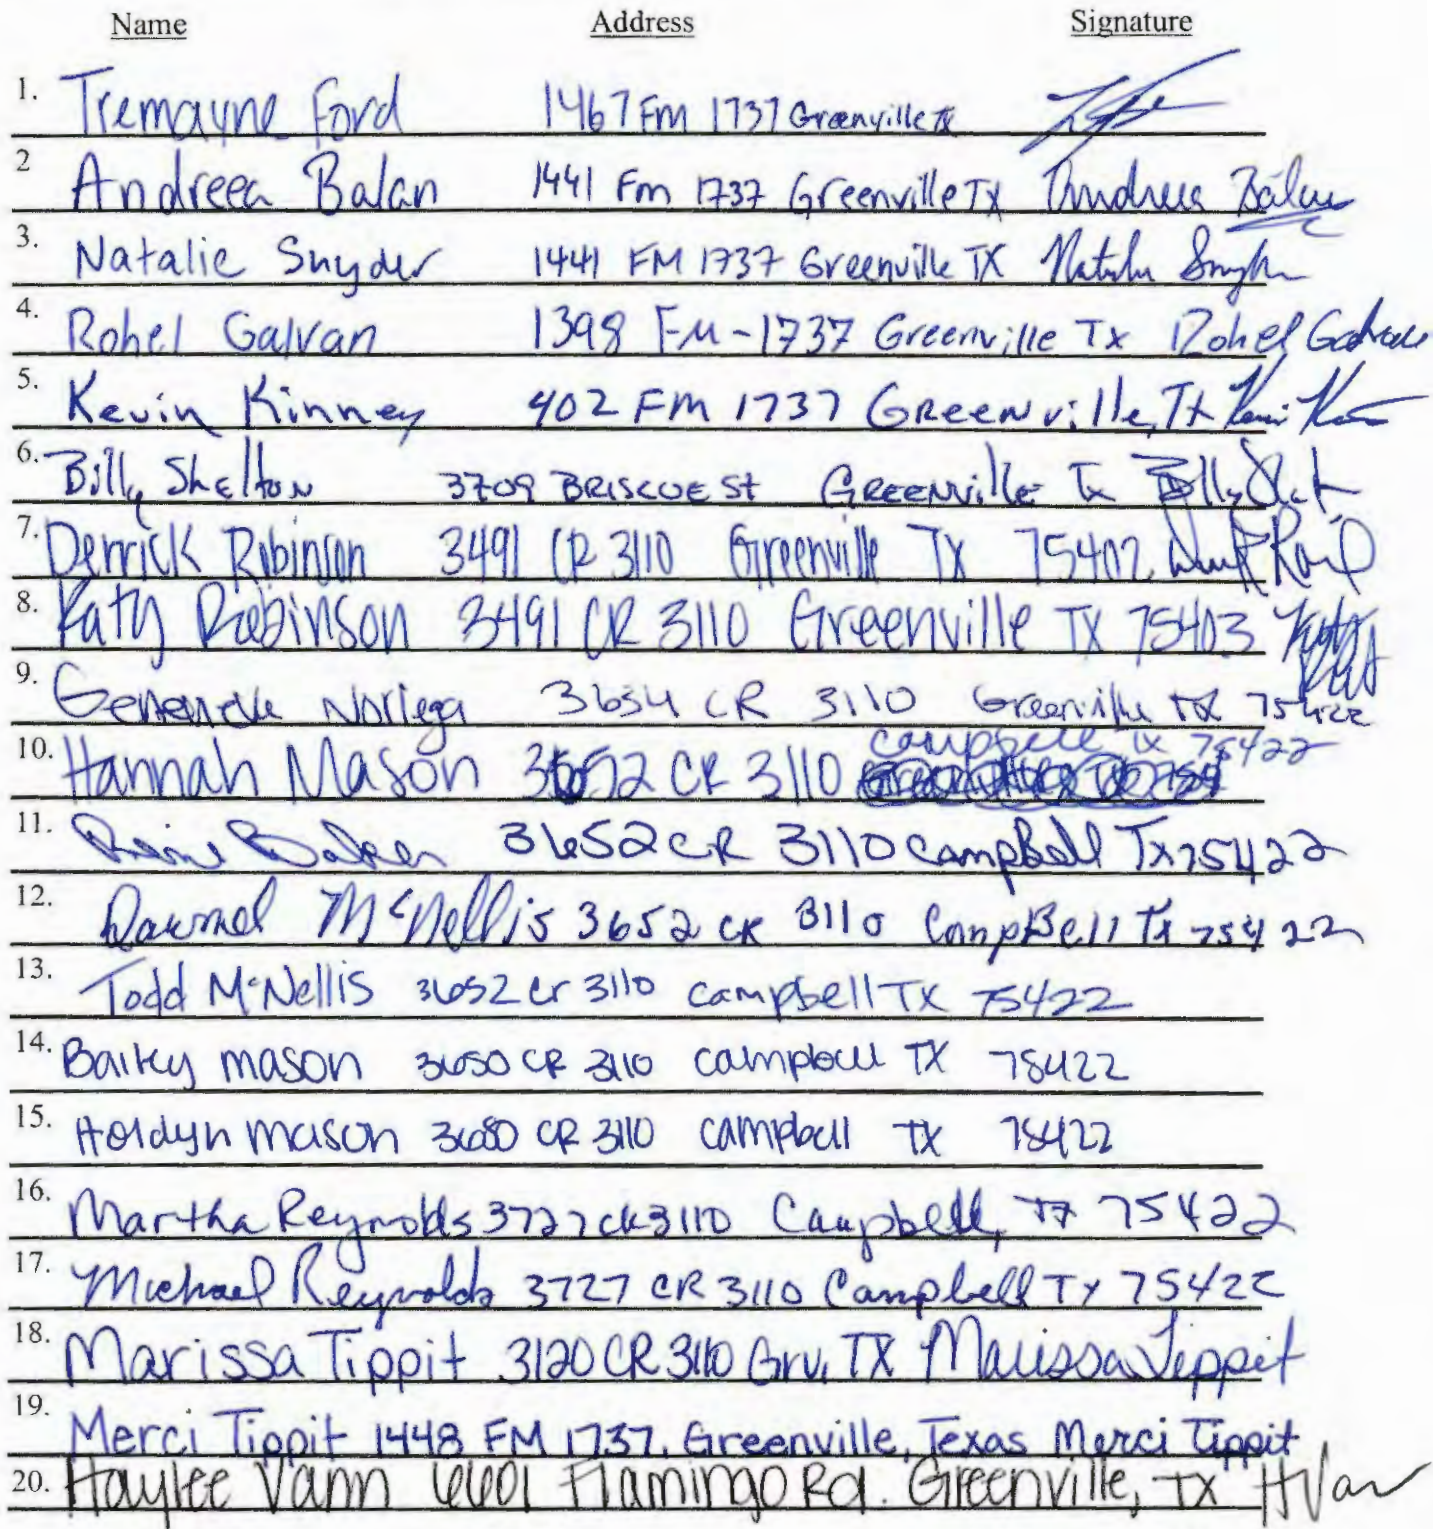 Name Address Signature
1. Tremayne Ford 1467 FM 1737 Greenville TX
2 Andreea Balan 1441 FM 1737 Greenville TX Andreea Balan
3. Natalie Snyder 1441 FM 1737 Greenville TX Natalie Snyder
4. Rohel Galvan 1398 FM-1737 Greenville Tx Rohel Galvan
5. Kevin Kinney 402 FM 1737 GREENville, TX
6. Billy Shelton 3709 BRISCOE St GREENville Tx Billy
7. Derrick Robinson 3491 CR 3110 Greenville TX 75402
8. Katy Robinson 3491 CR 3110 Greenville TX 75403 Katy
9. Noriega 3634 CR 3110 Greenville TX 75422
10. Hannah Mason 3652 CR 3110 campbell tx 75422
11. Baker 3652 CR 3110 Campbell Tx 75422
12. McNellis 3652 CR 3110 CampBell Tx 75422
13. Todd McNellis 3652 cr 3110 campbell TX 75422
14. Bailey mason 3650 CR 3110 campbell TX 75422
15. Holdyn mason CR 3110 campbell TX 75422
16. Martha Reynolds 3727 CR 3110 Campbell, TX 75422
17. Michael Reynolds 3727 CR 3110 Campbell TX 75422
18. Marissa Tippit 3120 CR 3110 Grv, TX Marissa Tippit
19. Merci Tippit 1448 FM 1737, Greenville, Texas Merci Tippit
20. Haylee Vann 6601 Flamingo Rd. Greenville, TX HVan